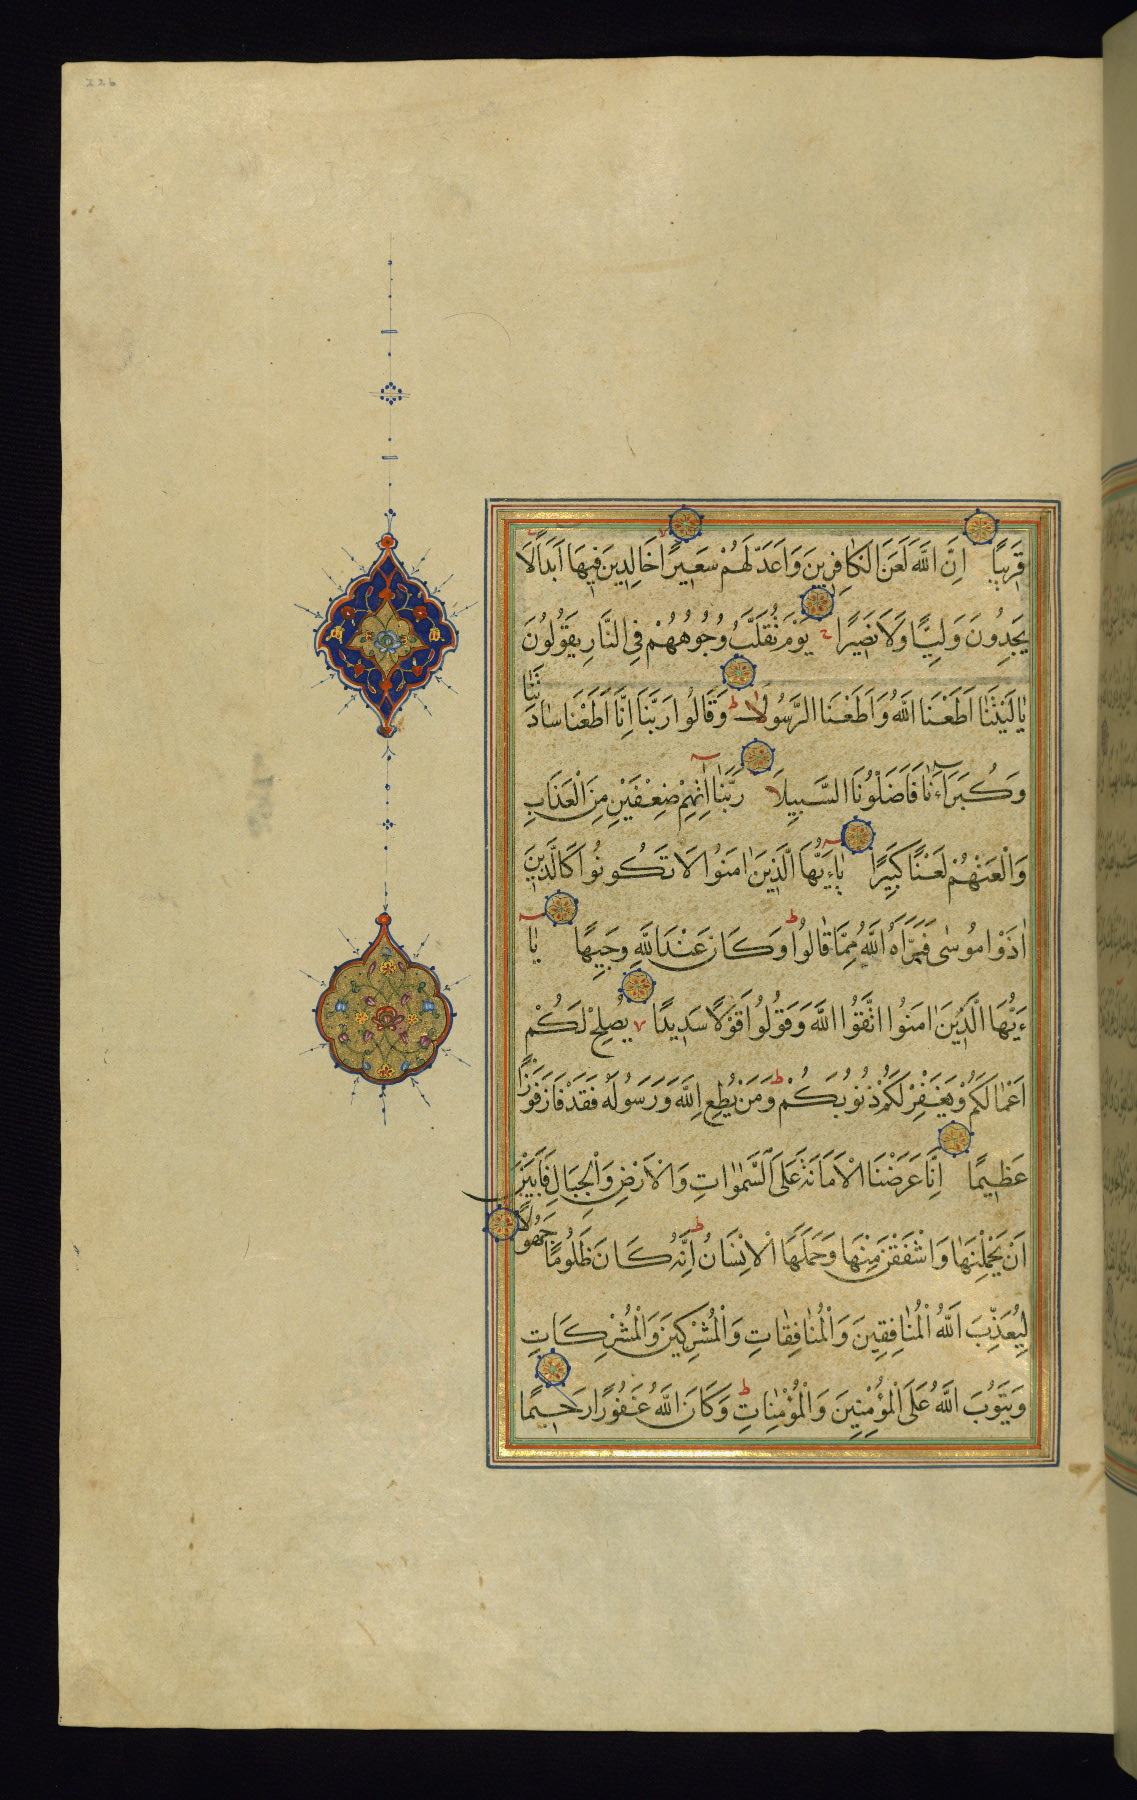 226
قَرِيبًا اِنَّ اللَّهَ لَعَنَ الْكَافِرِينَ وَاَعَدَّ لَهُمْ سَعِيرًا خَالِدِينَ فِيهَا اَبَدًا لَا
يَجِدُونَ وَلِيًّا وَلَا نَصِيرًا يَوْمَ تُقَلَّبُ وُجُوهُهُمْ فِي النَّارِ يَقُولُونَ
يَا لَيْتَنَا اَطَعْنَا اللَّهَ وَاَطَعْنَا الرَّسُولَا ط وَقَالُوا رَبَّنَا اِنَّا اَطَعْنَا سَادَتَنَا
وَكُبَرَاءَنَا فَاَضَلُّونَا السَّبِيلَا رَبَّنَا اٰتِهِمْ ضِعْفَيْنِ مِنَ الْعَذَابِ
وَالْعَنْهُمْ لَعْنًا كَبِيرًا يَاءَيُّهَا الَّذِينَ اٰمَنُوا لَا تَكُونُوا كَالَّذِينَ
اٰذَوْا مُوسٰى فَبَرَّاَهُ اللَّهُ مِمَّا قَالُوا ط وَكَانَ عِنْدَ اللَّهِ وَجِيهًا يَا
ءَيُّهَا الَّذِينَ اٰمَنُوا اتَّقُوا اللَّهَ وَقُولُوا قَوْلًا سَدِيدًا يُصْلِحْ لَكُمْ
اَعْمَالَكُمْ وَيَغْفِرْ لَكُمْ ذُنُوبَكُمْ ط وَمَنْ يُطِعِ اللَّهَ وَرَسُولَهُ فَقَدْ فَازَ فَوْزًا
عَظِيمًا اِنَّا عَرَضْنَا الْاَمَانَةَ عَلَى السَّمٰوَاتِ وَالْاَرْضِ وَالْجِبَالِ فَاَبَيْنَ
اَنْ يَحْمِلْنَهَا وَاَشْفَقْنَ مِنْهَا وَحَمَلَهَا الْاِنْسَانُ ط اِنَّهُ كَانَ ظَلُومًا جَهُولًا
لِيُعَذِّبَ اللَّهُ الْمُنَافِقِينَ وَالْمُنَافِقَاتِ وَالْمُشْرِكِينَ وَالْمُشْرِكَاتِ
وَيَتُوبَ اللَّهُ عَلَى الْمُؤْمِنِينَ وَالْمُؤْمِنَاتِ ط وَكَانَ اللَّهُ غَفُورًا رَحِيمًا